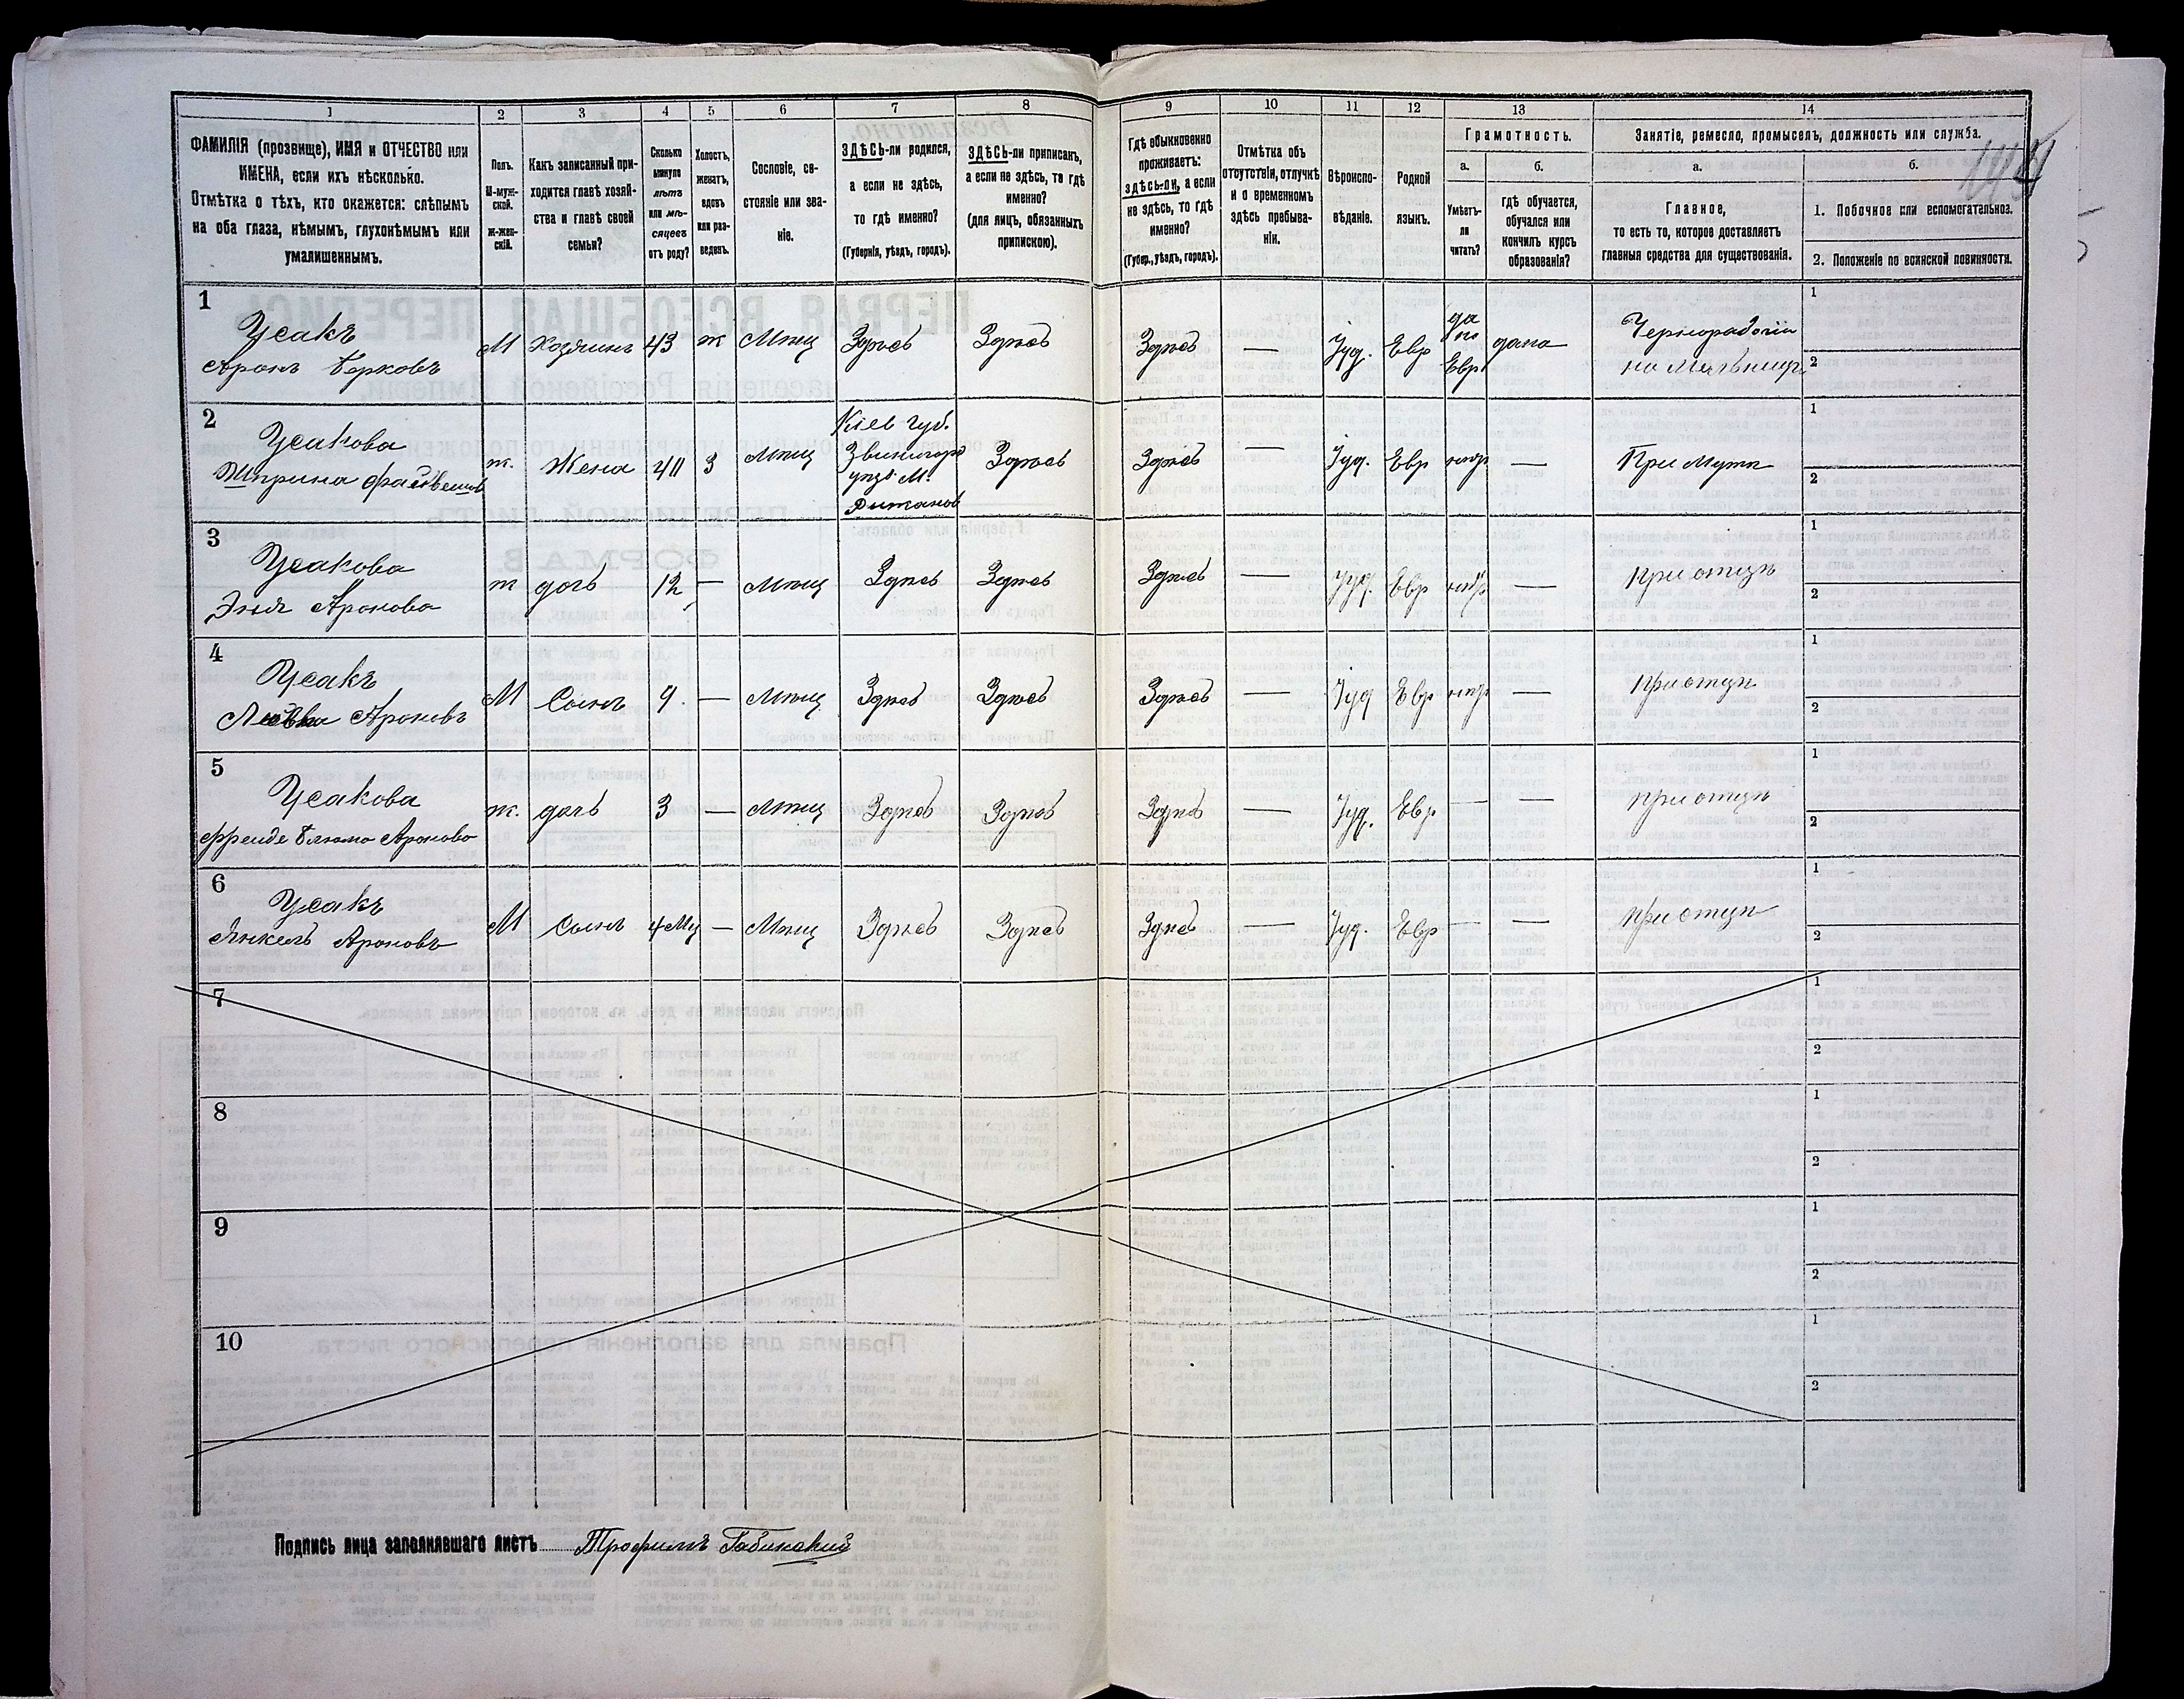 1 2 3 4 5 6 7 8 9 10 11 12 13 14
ФАМИЛІЯ (прозвище), ИМЯ и ОТЧЕСТВО или
ИМЕНА, если ихъ нѣсколько.
Отмѣтка о тѣхъ, кто окажется: слѣпымъ
на оба глаза, нѣмымъ, глухонѣмымъ или
умалишеннымъ.
Полъ.
М-муж-
ской.
ж-жен-
скій.
Какъ записанный при-
ходится главѣ хозяй-
ства и главѣ своей
семьи?
Сколько
минуло
лѣтъ
или мѣ-
сяцевъ
отъ роду?
Холостъ,
женатъ,
вдовъ
или раз-
веденъ.
Сословіе, со-
стояніе или зва-
ніе.
ЗДѢСЬ-ли родился,
а если не здѣсь,
то гдѣ именно?
(Губернія, уѣздъ, городъ).
ЗДѢСЬ-ли приписанъ,
а если не здѣсь, то гдѣ
именно?
(для лицъ, обязанныхъ
припискою).
Гдѣ обыкновенно
проживаетъ:
здѣсь-ли, а если
не здѣсь, то гдѣ
именно?
(Губер., уѣздъ, городъ).
Отмѣтка объ
отсутствіи, отлучкѣ
и о временномъ
здѣсь пребыва-
ніи.
Вѣроиспо-
вѣданіе.
Родной
языкъ.
Грамотность.
а.
Умѣетъ-
ли
читать?
б.
гдѣ обучается,
обучался или
кончилъ курсъ
образованія?
Занятіе, ремесло, промыселъ, должность или служба.
а.
Главное,
то есть то, которое доставляетъ
главныя средства для существованія.
б.
1. Побочное или вспомогательное.
2. Положеніе по воинской повинности.
1
Усакъ
Аронъ Берковъ
М Хозяинъ 43 ж Мѣщ Здѣсь Здѣсь Здѣсь — Іуд. Евр
да
по
Евр
дома
Чернорабочій
на Мельницѣ
1
2
2
Усакова
М
ж. Жена 40 З Мѣщ
Кіев губ.
Звенигор
уѣзд М.
Здѣсь Здѣсь — Іуд. Евр нѣт — При Мужѣ
1
2
3
Усакова
Эня Аронова
ж дочь 12 — Мѣщ Здѣсь Здѣсь Здѣсь — Іуд. Евр нѣт — при отцѣ
1
2
4
Усакъ
Ароновъ
М Сынъ 9 — Мѣщ Здѣсь Здѣсь Здѣсь — Іуд Евр нѣт — при отцѣ
1
2
5
Усакова
Фрейде Блюма Аронова
ж. дочь 3 — Мѣщ Здѣсь Здѣсь Здѣсь — Іуд. Евр — — при отцѣ
1
2
6
Усакъ
Янкель Ароновъ
М Сынъ 4 Мц — Мѣщ Здѣсь Здѣсь Здѣсь — Іуд. Евр — — при отцѣ
1
2
7
1
2
8
1
2
9
1
2
10
1
2
Подпись лица заполнявшаго листъ Трофимъ Габинский